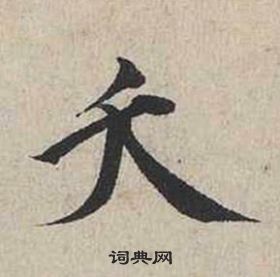 夭
词典网